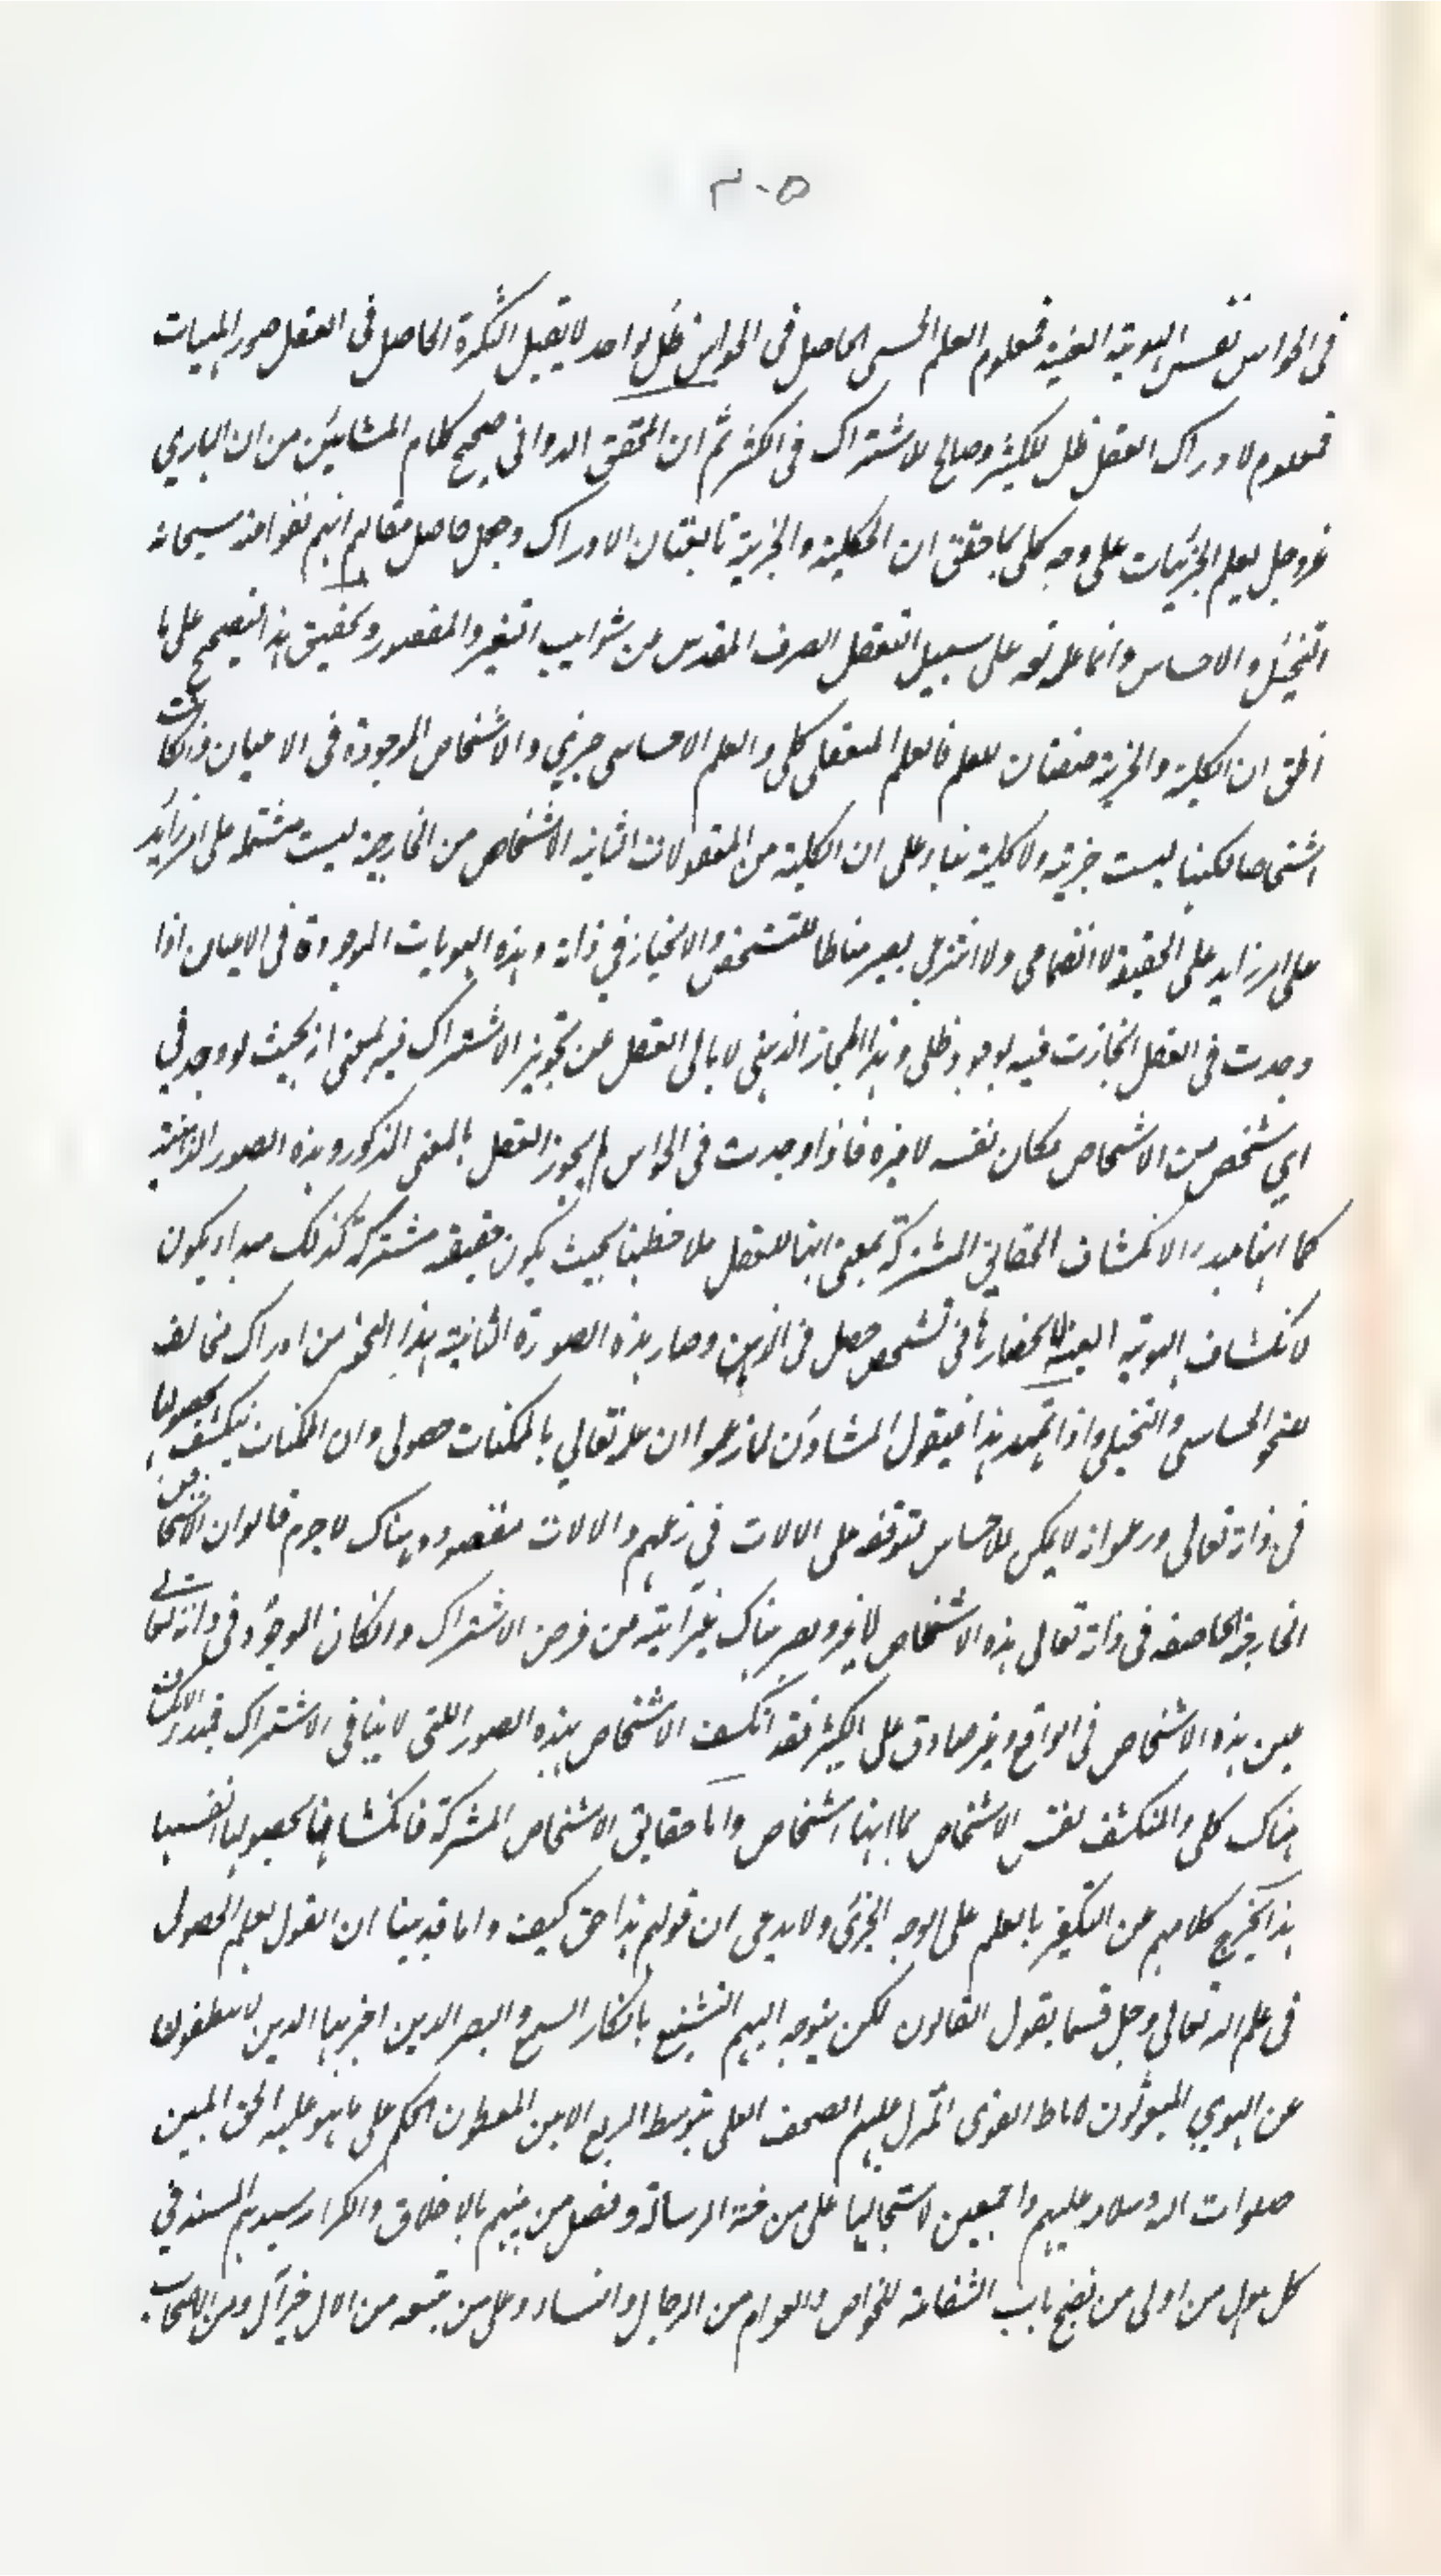 ٣٠٥
فى الحواس نفس الهوية العينية فمعلوم العلم الحسى الحاصل فى الحواس ظل لواحد لا يقبل التكثرة الحاصل فى العقل صور المهيات
فمعلوم لا دراك العقل ظل للكثير وصالح للاشتراك فى الكثير ثم ان المحقق الدوانى صحح كلام المشايئن من ان البارى
عز وجل يعلم الجزئيات على وجه كلى بما حقق ان الكلية والجزئية تابعتان الادراك وجعل حاصل مقالهم انهم نفوا عنه سبحانه
التخيل والاحساس وانما علمه تعه على سبيل التعقل الصرف المقدس عن شوايب التغير والمقصود وتحقيق هذا التصحيح على ما
اظن ان الكلية والجزئية صفتان للعلم فالعلم التعقلى كلى والعلم الاحساسى جزئى والاشخاص الموجودة فى الاعيان وان كانت
اشخاصا لكنها ليست جزئية ولا كلية بناء على ان الكلية من المعقولات الثانية الاشخاص من الخارجية ليست مشتملة على امر زايد
على امر زايد على الحقيقة لا انضمامى ولا انتزاعى يصير مناطا للتشخص والانحياز فى ذاته وهذه الهويات الموجودة فى الاعيان اذا
وجدت فى العقل انحازت فيه بوجود ظلى وهذا الانحياز الذهنى لا يابى العقل عن تجويز الاشتراك فيه بمعنى انه بحيث لو وجد فى
اى شخص من الاشخاص لكان نفسه لا غيره فاذا وجدت فى الحواس لم يجوز العقل بالمعنى المذكور وهذه الصور الذهنية
كما انها مبدء الانكشاف الحقايق المشتركة بمعنى انها للعقل ملاحظتها بحيث يكون حقيقة مشتركة كذلك مبداء يكون
لانكشاف الهوية العينية لانحصارها فى تشخص حصل فى الذهن وصار هذه الصورة الثانية هذا النحو من ادراك مخالف
للنحو الحساسى والتخيلى واذا تمهد هذا فيقول المشاؤن لما زعموا ان علمه تعالى بالممكنات حصولى وان الممكنات ينكشف بحصولها
فى ذاته تعالى وزعموا انه لا يمكن للاحساس لتوقفه على الالات فى زعمهم والالات مفقودة هناك لا جرم قالوا ان الاشخاص
الخارجية الحاصلة فى ذاته تعالى هذه الاشخاص لا غير ويصير هناك غير ابية عن فرض الاشتراك وان كان الموجود فى ذاته تعالى
عين هذه الاشخاص فى الواقع وغير صادق على الكثير فقد انكشف الاشخاص بهذه الصور اللتى لا ينافى الاشتراك فمبدء الانكشاف
هناك كلى والمنكشف نفس الاشخاص بما انها اشخاص واما حقايق الاشخاص المشتركة فانكشافها بحصولها انفسها
هذا يخرج كلامهم عن التكفير بالعلم على الوجه الجزئى ولا يدعى ان قولهم هذا حق كيف وانا قد بينا ان القول بعلم الحصول
فى علم الله تعالى وجل قسما يقول القائلون لكن يتوجه اليهم التشنيع بانكار السمع والبصر الذين اخبر بهما الذين لا ينطقون
عن الهوى المبعوثون المنزل عليهم الصحف العلى بتوسط الروح الامين المعطون الحكم على ما هو عليه الحق المبين
صلوات الله وسلامه عليهم واجمعين لا سيما على من ختم الرسالة وفضل من بينهم بالاخلاق والكرام سيدهم المسند فى
كل هول من اولى من يفتح باب الشفاعة للخواص والعوام من الرجال والنساء وعلى من تبعه من الال خير آل ومن الاصحاب